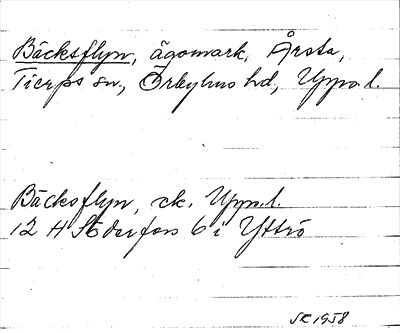 Bäcksflyn, ägomark, Årsta,
Tierps sn, Örbyhus hd, Upps. l.
Bäcksflyn, ek. Uppl.
12 H Söderfors 6 i Yttrö
SE 1958